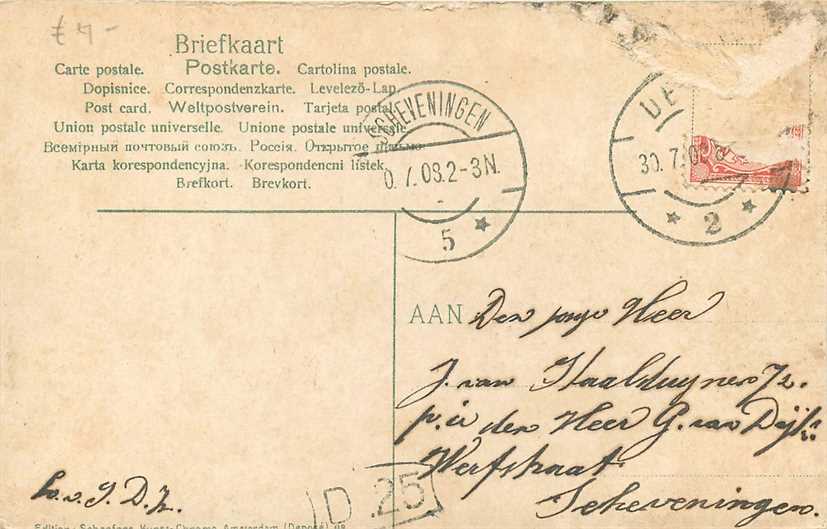 £ 4-
Briefkaart
Carte postale. Postkarte. Cartolina postale.
Dopisnice. Correspondenzkarte. Levelezö-Lap
Post card. Weltpostverein. Tarjeta postal
Union postale universelle. Unione postale universale
Всемірный почтовый союзъ. Россія. Открытое письмо
Karta korespondencyjna. Korespondencni listek
Brefkort. Brevkort.
SCHEVENINGEN
0.7.08.2-3N.
5
DE
30.7.0 8
2
AAN Den jonge Heer
J. van Staalduynen Jz.
p.a. den Heer G. van
Werfstraat
Scheveningen.
D.25
Edition: Schaefers Kunst-Chromo, Amsterdam (Déposé)